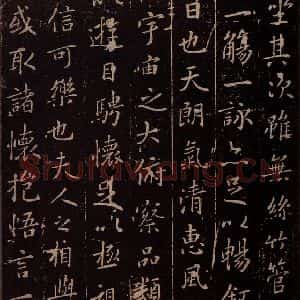 坐其次雖無絲竹管
一觴一詠亦足以暢叙
日也天朗氣清惠風
宇宙之大俯察品類
遊目騁懷足以極視
信可樂也夫人之相與
或取諸懷抱悟言一
Shufawang.CN